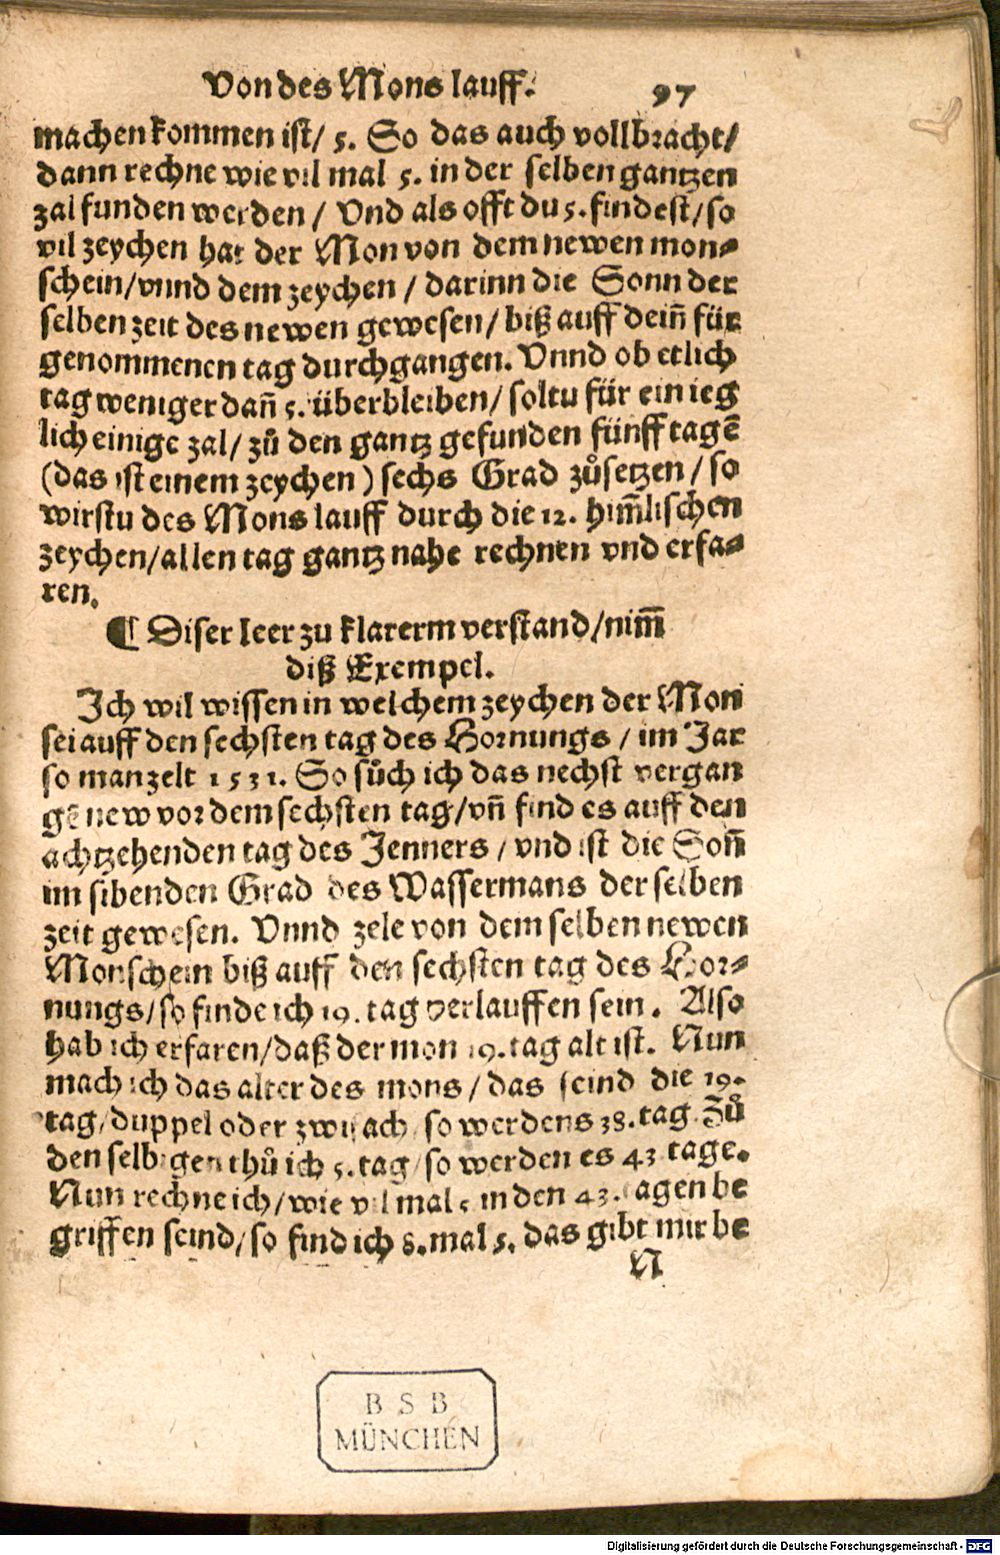 Von des Mons lauff. 97
machen kommen ist/ 5. So das auch vollbracht/
dann rechne wie vil mal 5. in der selben gantzen
zal funden werden / Vnd als offt du 5. findest/ so
vil zeychen hat der Mon von dem newen mon⸗
schein/vnnd dem zeychen / darinn die Sonn der
selben zeit des newen gewesen/ biß auff dein̄ für
genommenen tag durchgangen. Vnnd ob etlich
tag weniger dañ 5. überbleiben/ soltu für ein ieg
lich einige zal/ zů den gantz gefunden fünff tagē
(das ist einem zeychen) sechs Grad zůsetzen/ so
wirstu des Mons lauff durch die 12. him̄lischen
zeychen/allen tag gantz nahe rechnen vnd erfa⸗
ren.
¶ Diser leer zu klarerm verstand/nim̄
diß Exempel.
Ich wil wissen in welchem zeychen der Mon
sei auff den sechsten tag des Hornungs / im Jar
so man zelt 1531. So sůch ich das nechst vergan
gē new vor dem sechsten tag/vñ find es auff den
achtzehenden tag des Jenners / vnd ist die Soñ
im sibenden Grad des Wassermans der selben
zeit gewesen. Vnnd zele von dem selben newen
Monschein biß auff den sechsten tag des Hor⸗
nungs/so finde ich 19. tag verlauffen sein. Also
hab ich erfaren/daß der mon 19. tag alt ist. Nun
mach ich das alter des mons/ das seind die 19.
tag/ duppel oder zwifach/ so werdens 38. tag. Zů
den selbigen thů ich 5. tag/ so werden es 43 tage.
Nun rechne ich/ wie vil mal 5 in den 43. tagen be
griffen seind/ so find ich 8. mal 5. das gibt mir be
N
B S B
MÜNCHEN
Digitalisierung gefördert durch die Deutsche Forschungsgemeinschaft - DFG